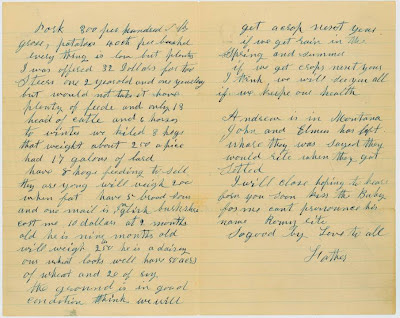 Pork 300 per hundred
gross, potatoes 40cts per bushel
every thing is low but plenty
I was offered 32 Dollars for two
Steers one 2 year old and one yearling
but would not take it have
plenty of feede and only 13
head of cattle and 2 horses
to winter we killed 3 hogs
that weight about 200 a pice
had 17 galons of lard
have 8 hogs feeding to sell
they are yong will weigh 200
when fat have 5 brood sows
and one mail is
cost me 10 dollars at 2 months
old he is nine months old
will weigh 250 he is a daisey
our wheat looks well have 50 acers
of wheat and 20 of rey.
the ground is in good
condition think we will
get a crop next year.
if we get rain in the
Spring and summer
if we get crops next year
I think we will see you all
if we keepe our health
Andrew is in Montana
John and Elmer has left
whare they was sayed they
would rite when they got
Settled
I will close hoping to hear
from you soon Kiss the Baby
for me cant pronounce his
name
So good by Love to all
Father